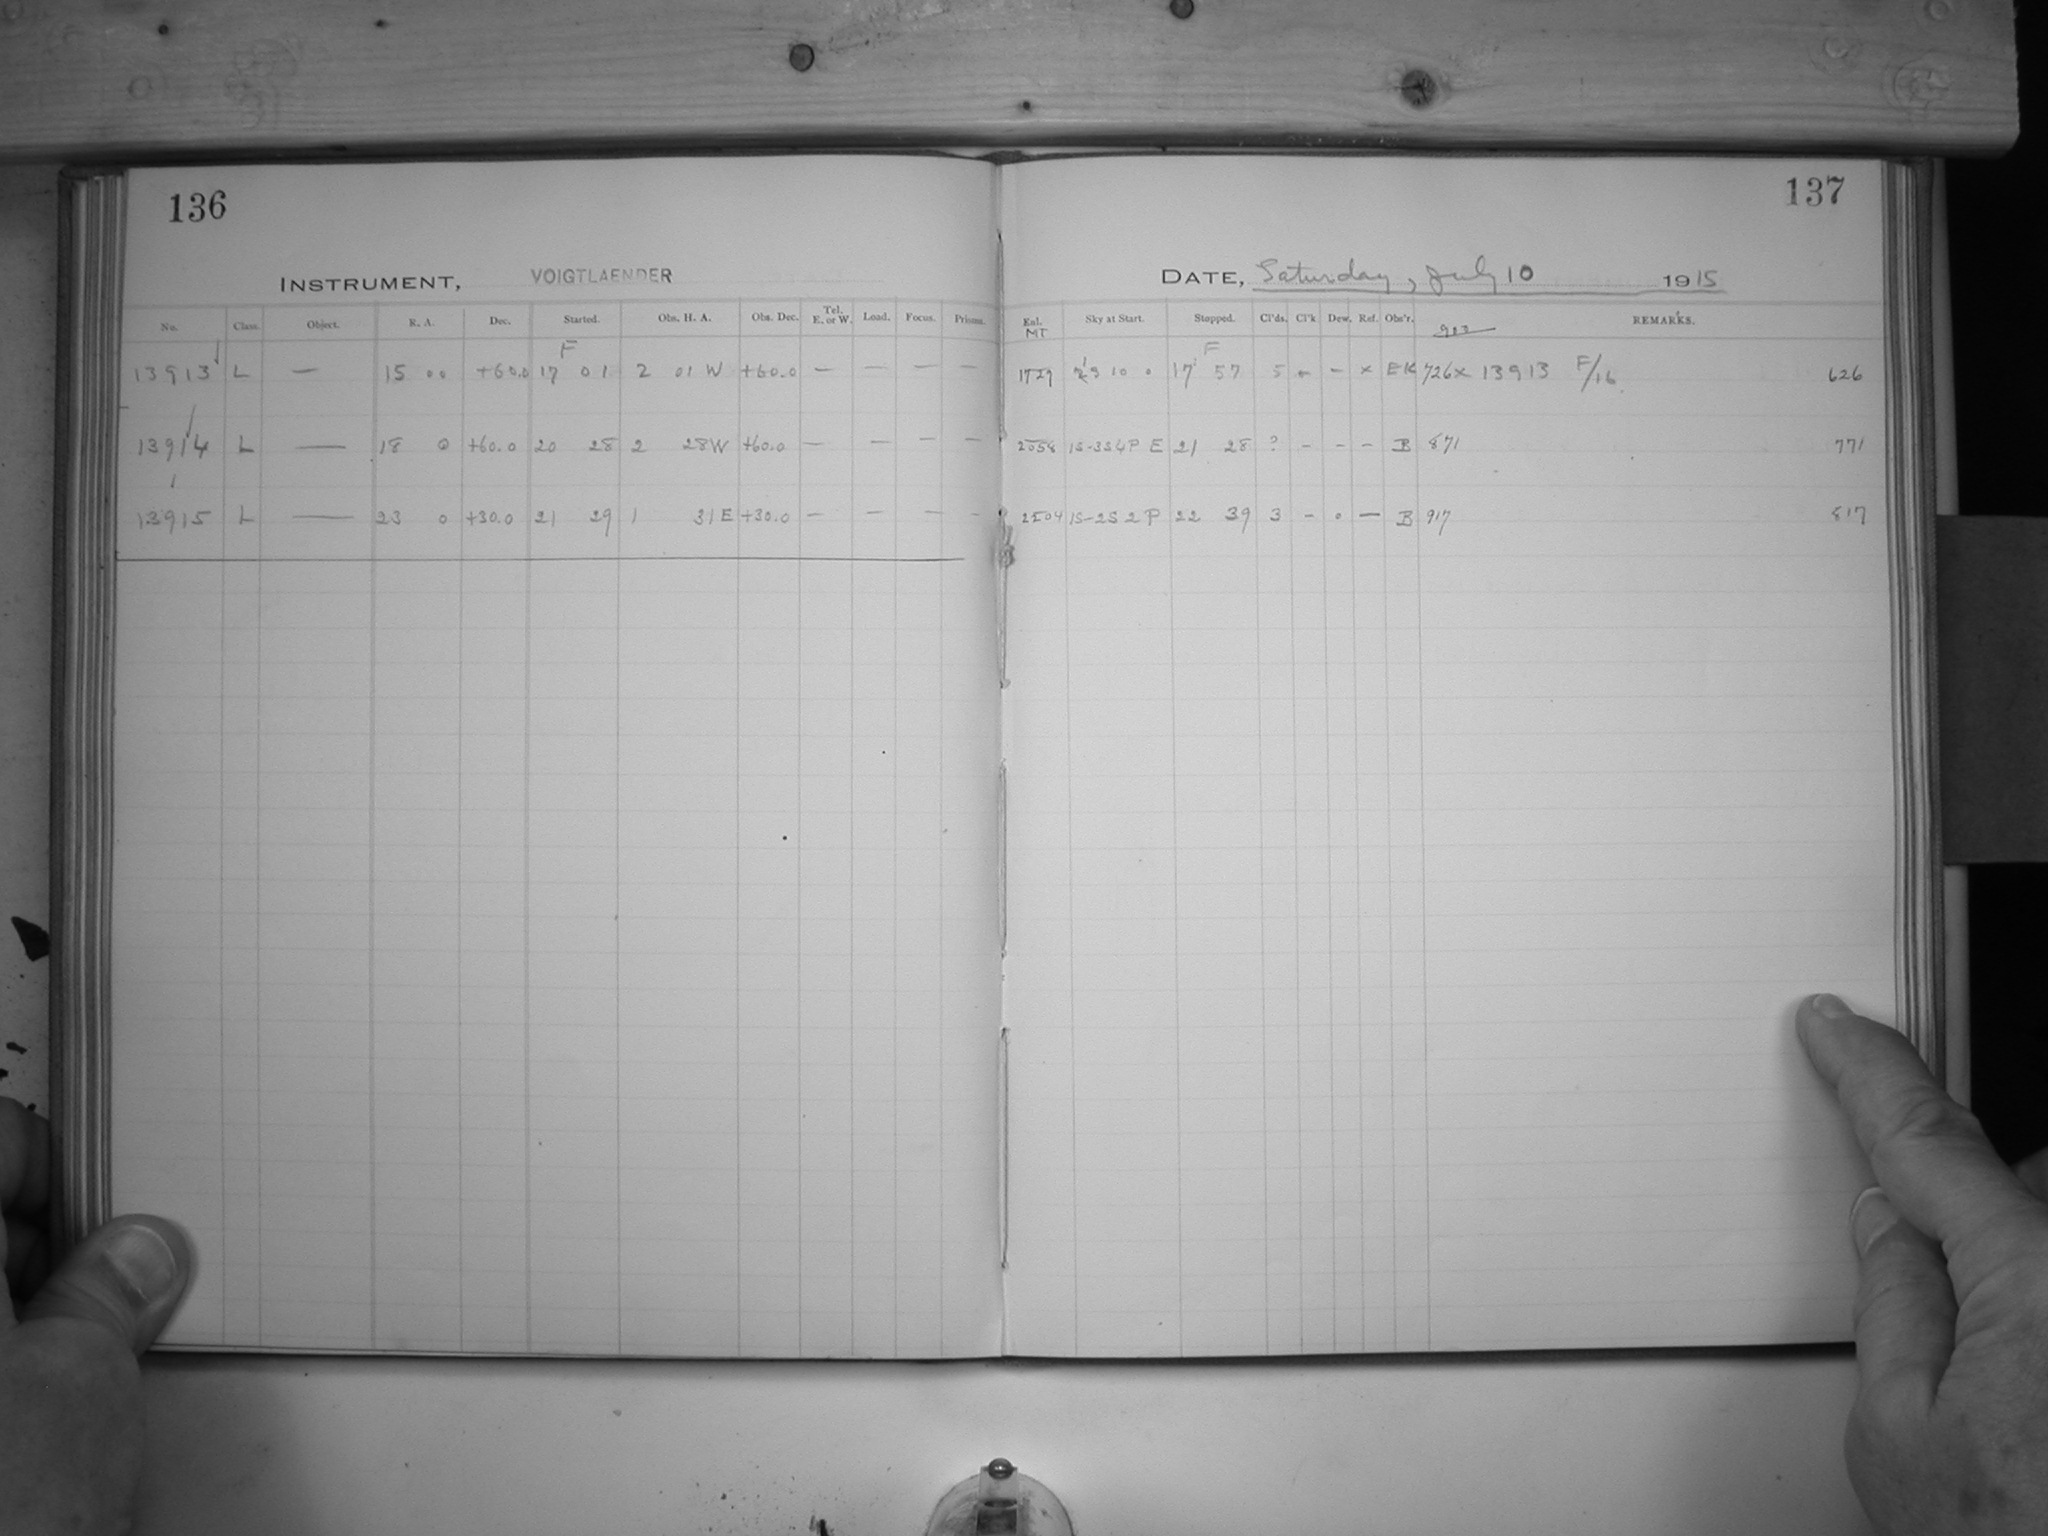 136
INSTRUMENT, VOIGTLAENDER
No. Class. Object. R. A. Dec. Started. Obs. H. A. Obs. Dec. Tel. E. or W. Load. Focus. Prisms.
F
13913 L — 15 00 +60.0 17 01 2 01 W +60.0 — — — —
13914 L — 18 0 +60.0 20 28 2 28W +60.0 — — — —
13915 L — 23 0 +30.0 21 29 1 31E +30.0 — — — —
137
DATE, Saturday, July 10 1915
Exl. MT Sky at Start. Stopped. Cl'ds. Cl'k Dew. Ref. Obs'r. REMARKS.
F
1729 10 0 17 57 5 - - x EK 726x 13913 F/16 626
2058 1S-3S4P E 21 28 ? - - - B 871 771
2204 1S-2S 2 P 22 39 3 - 0 — B 917 817